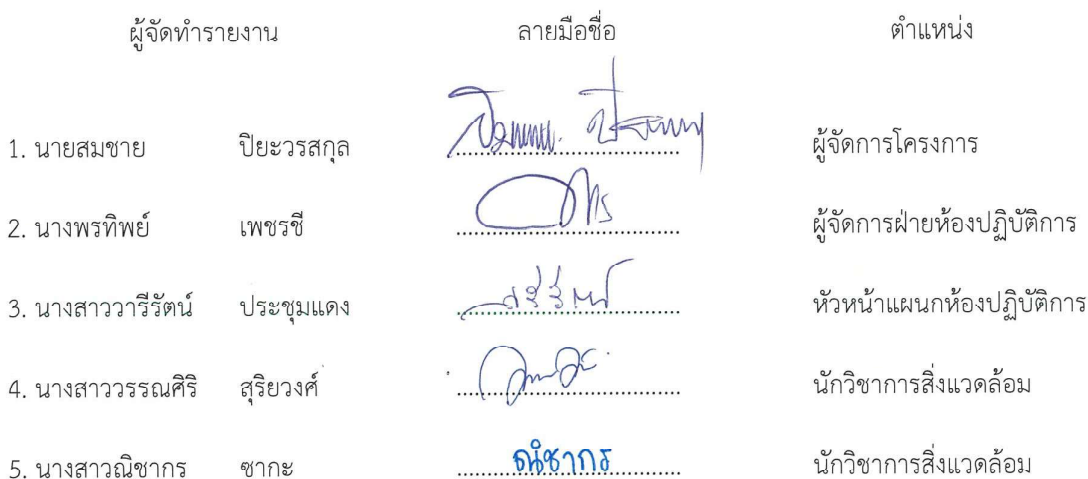 ผู้จัดทำรายงาน ลายมือชื่อ ตำแหน่ง
1. นายสมชาย ปิยะวรสกุล ผู้จัดการโครงการ
2. นางพรทิพย์ เพชรชี ผู้จัดการฝ่ายห้องปฏิบัติการ
3. นางสาววารีรัตน์ ประชุมแดง หัวหน้าแผนกห้องปฏิบัติการ
4. นางสาววรรณศิริ สุริยวงศ์ นักวิชาการสิ่งแวดล้อม
5. นางสาวณิชากร ซากะ ณิชากร นักวิชาการสิ่งแวดล้อม